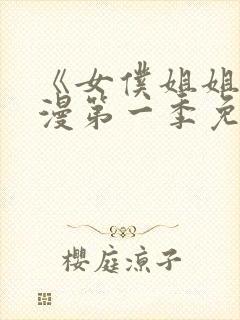 《女僕姐姐
漫第一季免
櫻庭凉子